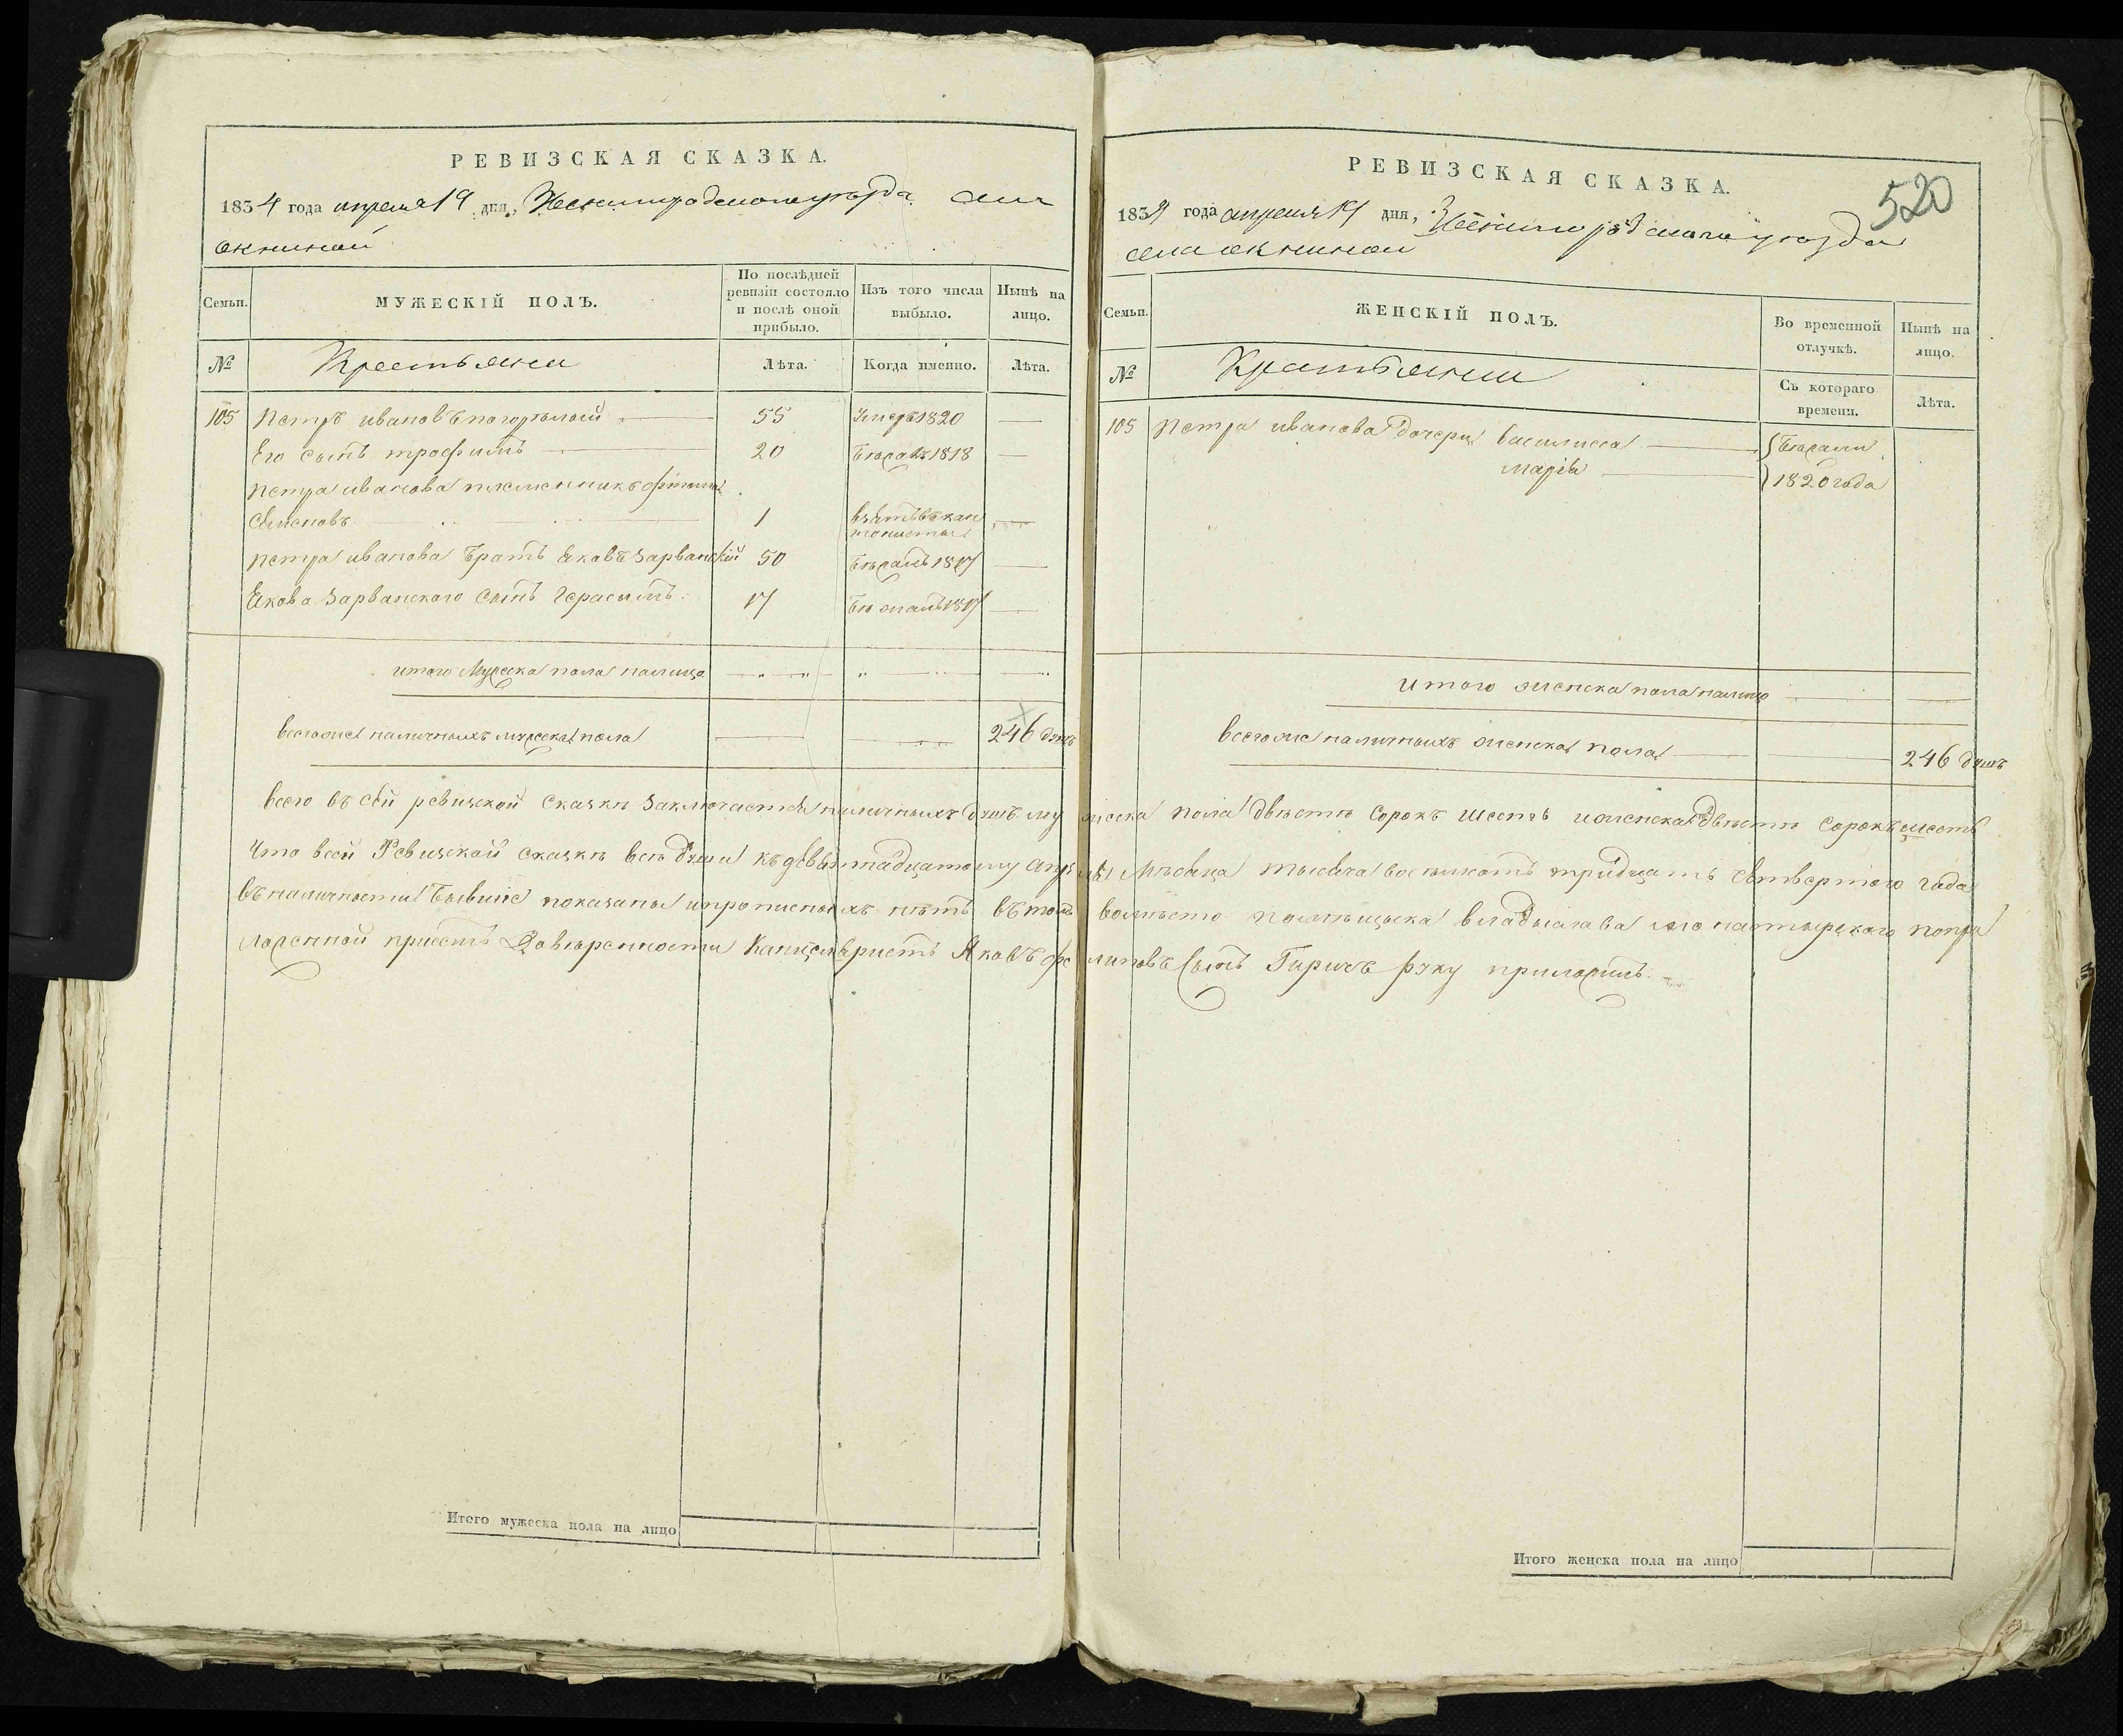 РЕВИЗСКАЯ СКАЗКА.
1834 года апреля 19 дня, уѣзда села
окниной
Семьи.
МУЖЕСКІЙ ПОЛЪ.
По послѣдней ревизіи состояло и послѣ оной прибыло.
Изъ того числа выбыло.
Нынѣ на лицо.
№
Крестьяне
Лѣта.
Когда именно.
Лѣта.
105 Петръ ивановъ погорѣлый 55 Умеръ 1820
Его сынъ трофимъ 20 Бѣжалъ 1818
Петра иванова племенникъ
Семеновъ 1 взятъ въ кан
тонисты
Петра иванова Братъ Яковъ Зарванскій 50 Бѣжалъ 1817
Якова Зарванского Сынъ Герасимъ 17 Бѣжалъ 1817
итого Мужеска пола налицо
всегоже наличныхъ мужеска пола 246 душъ
Итого мужеска пола на лицо
РЕВИЗСКАЯ СКАЗКА.
520
1834 года апреля 19 дня, уѣзда
села окниной
Семьи.
ЖЕНСКІЙ ПОЛЪ.
Во временной отлучкѣ.
Нынѣ на лицо.
№
Крестьянки
Съ котораго времени.
Лѣта.
105 Петра иванова дочери василиса Бѣжали
марія 1820 года
Итого женска пола налицо
всегоже наличныхъ женска пола 246 душъ
всего въ сей ревизской сказки заключается наличныхъ душъ мужеска пола двѣсти сорокъ шесть ижен­ска двѣсти сорокъ шесть
Что всей Ревизской сказки всѣ души къ девятнадцатому апреля Мѣсяца тысяча восемьсотъ тридцать четвертого года
въ наличности Бывшие показаны ипрописныхъ нѣтъ въ томъ вомѣсто помѣщика владислава по при
ложенной присемъ Довѣренности Канцеляристъ Яковъ сынъ руку приложилъ
Итого женска пола на лицо